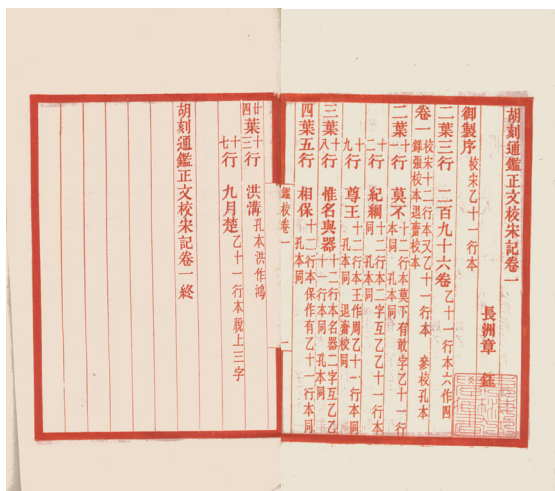 胡刻通鑑正文校宋記卷一
長洲章 鈺
御製序 校宋乙十一行本
二葉三行 二百九十六卷 乙十一行本六作四
卷一 校宋十二行本又乙十一行本 參校孔本 錄張校本退齋校本
二葉十一行 莫不 十二行本莫下有敢字乙十一行本同 孔本同
十二行 紀綱 十二行本二字互乙乙十一行本同 孔本同
十九行 尊王 十二行本王作周乙十一行本同 孔本同 退齋校同
三葉十八行 惟名與器 十二行本名器二字互乙乙十一行本同 孔本同
四葉五行 相保 十二行本保作有乙十一行本同 孔本同
鑑校卷一
二
廿四葉十三行 洪溝 孔本洪作鴻
十七行 九月楚 乙十一行本脫上三字
胡刻通鑑正文校宋記卷一終